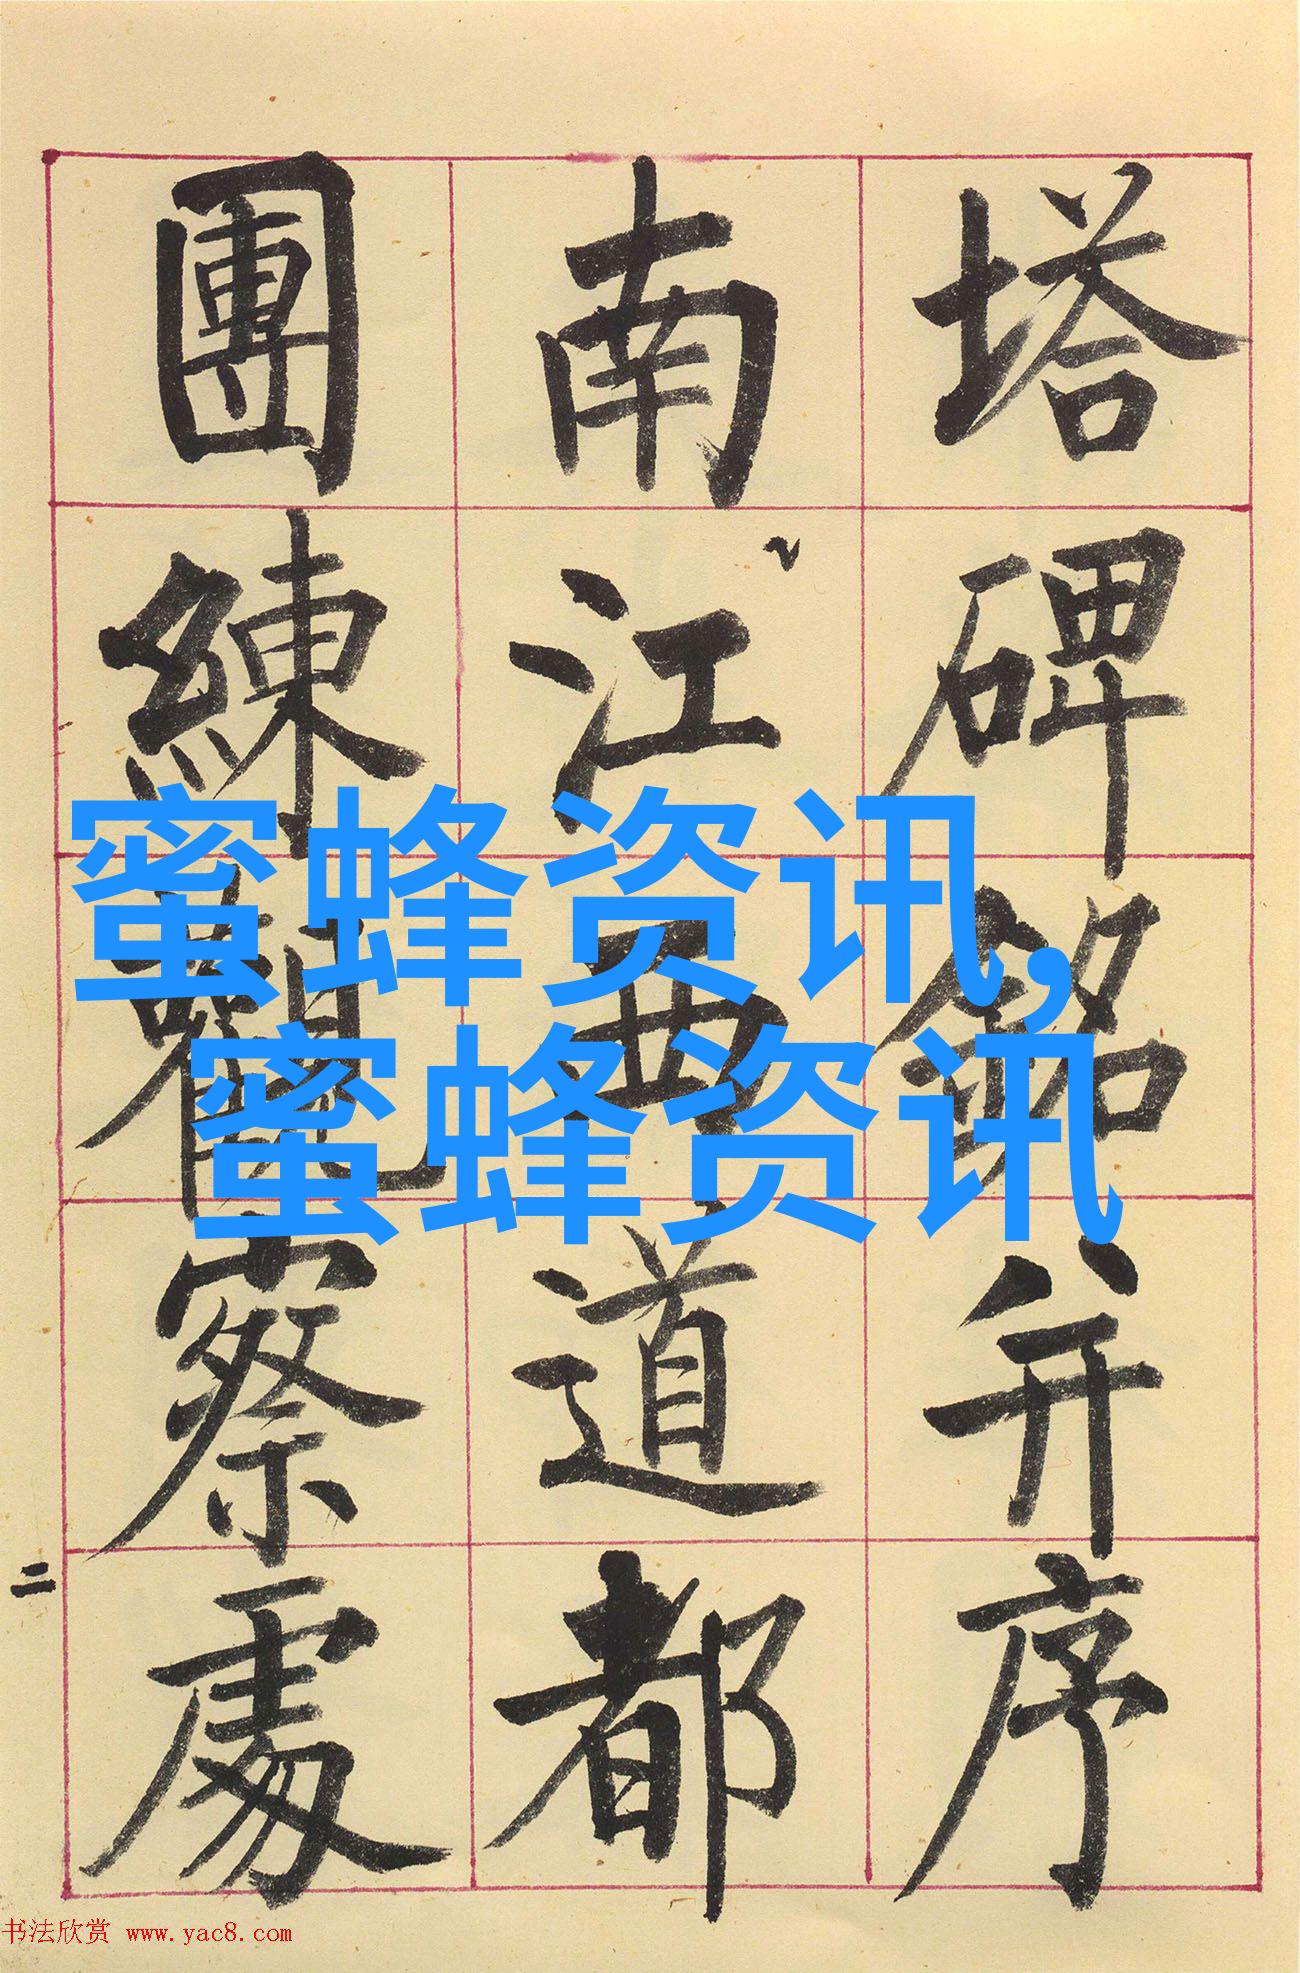 塔碑銘并序
南江西道都
團練觀察處
二
蜜蜂资讯,
蜜蜂资讯
书法欣赏 www.yac8.com